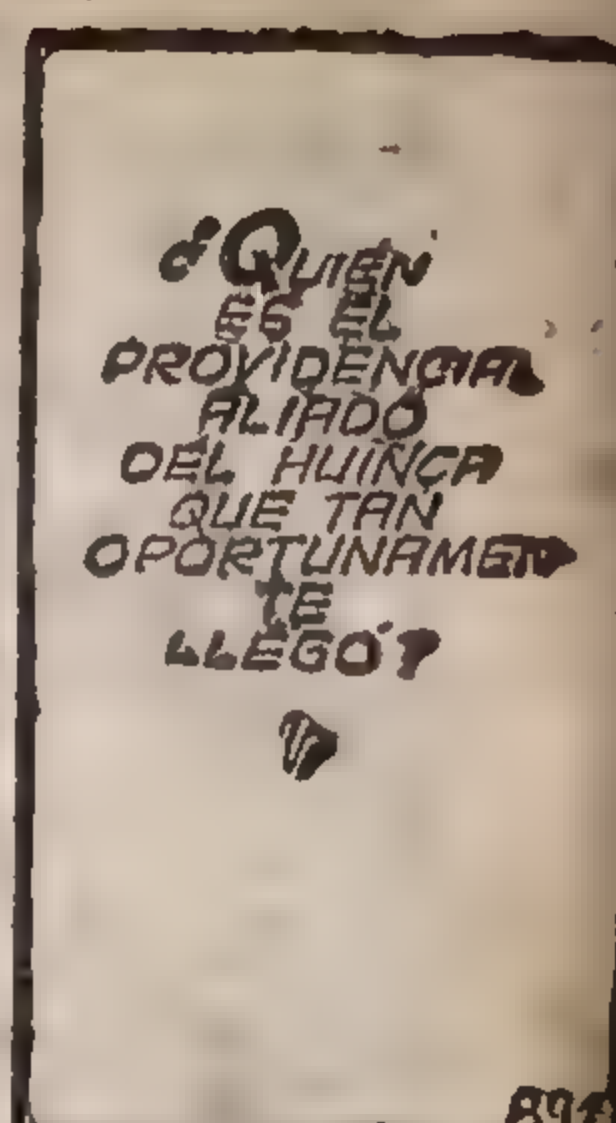 ¿QUIEN
ES EL
PROVIDENCIAL
ALIADO
DEL HUINCA
QUE TAN
OPORTUNAMEN
TE
LLEGÓ?